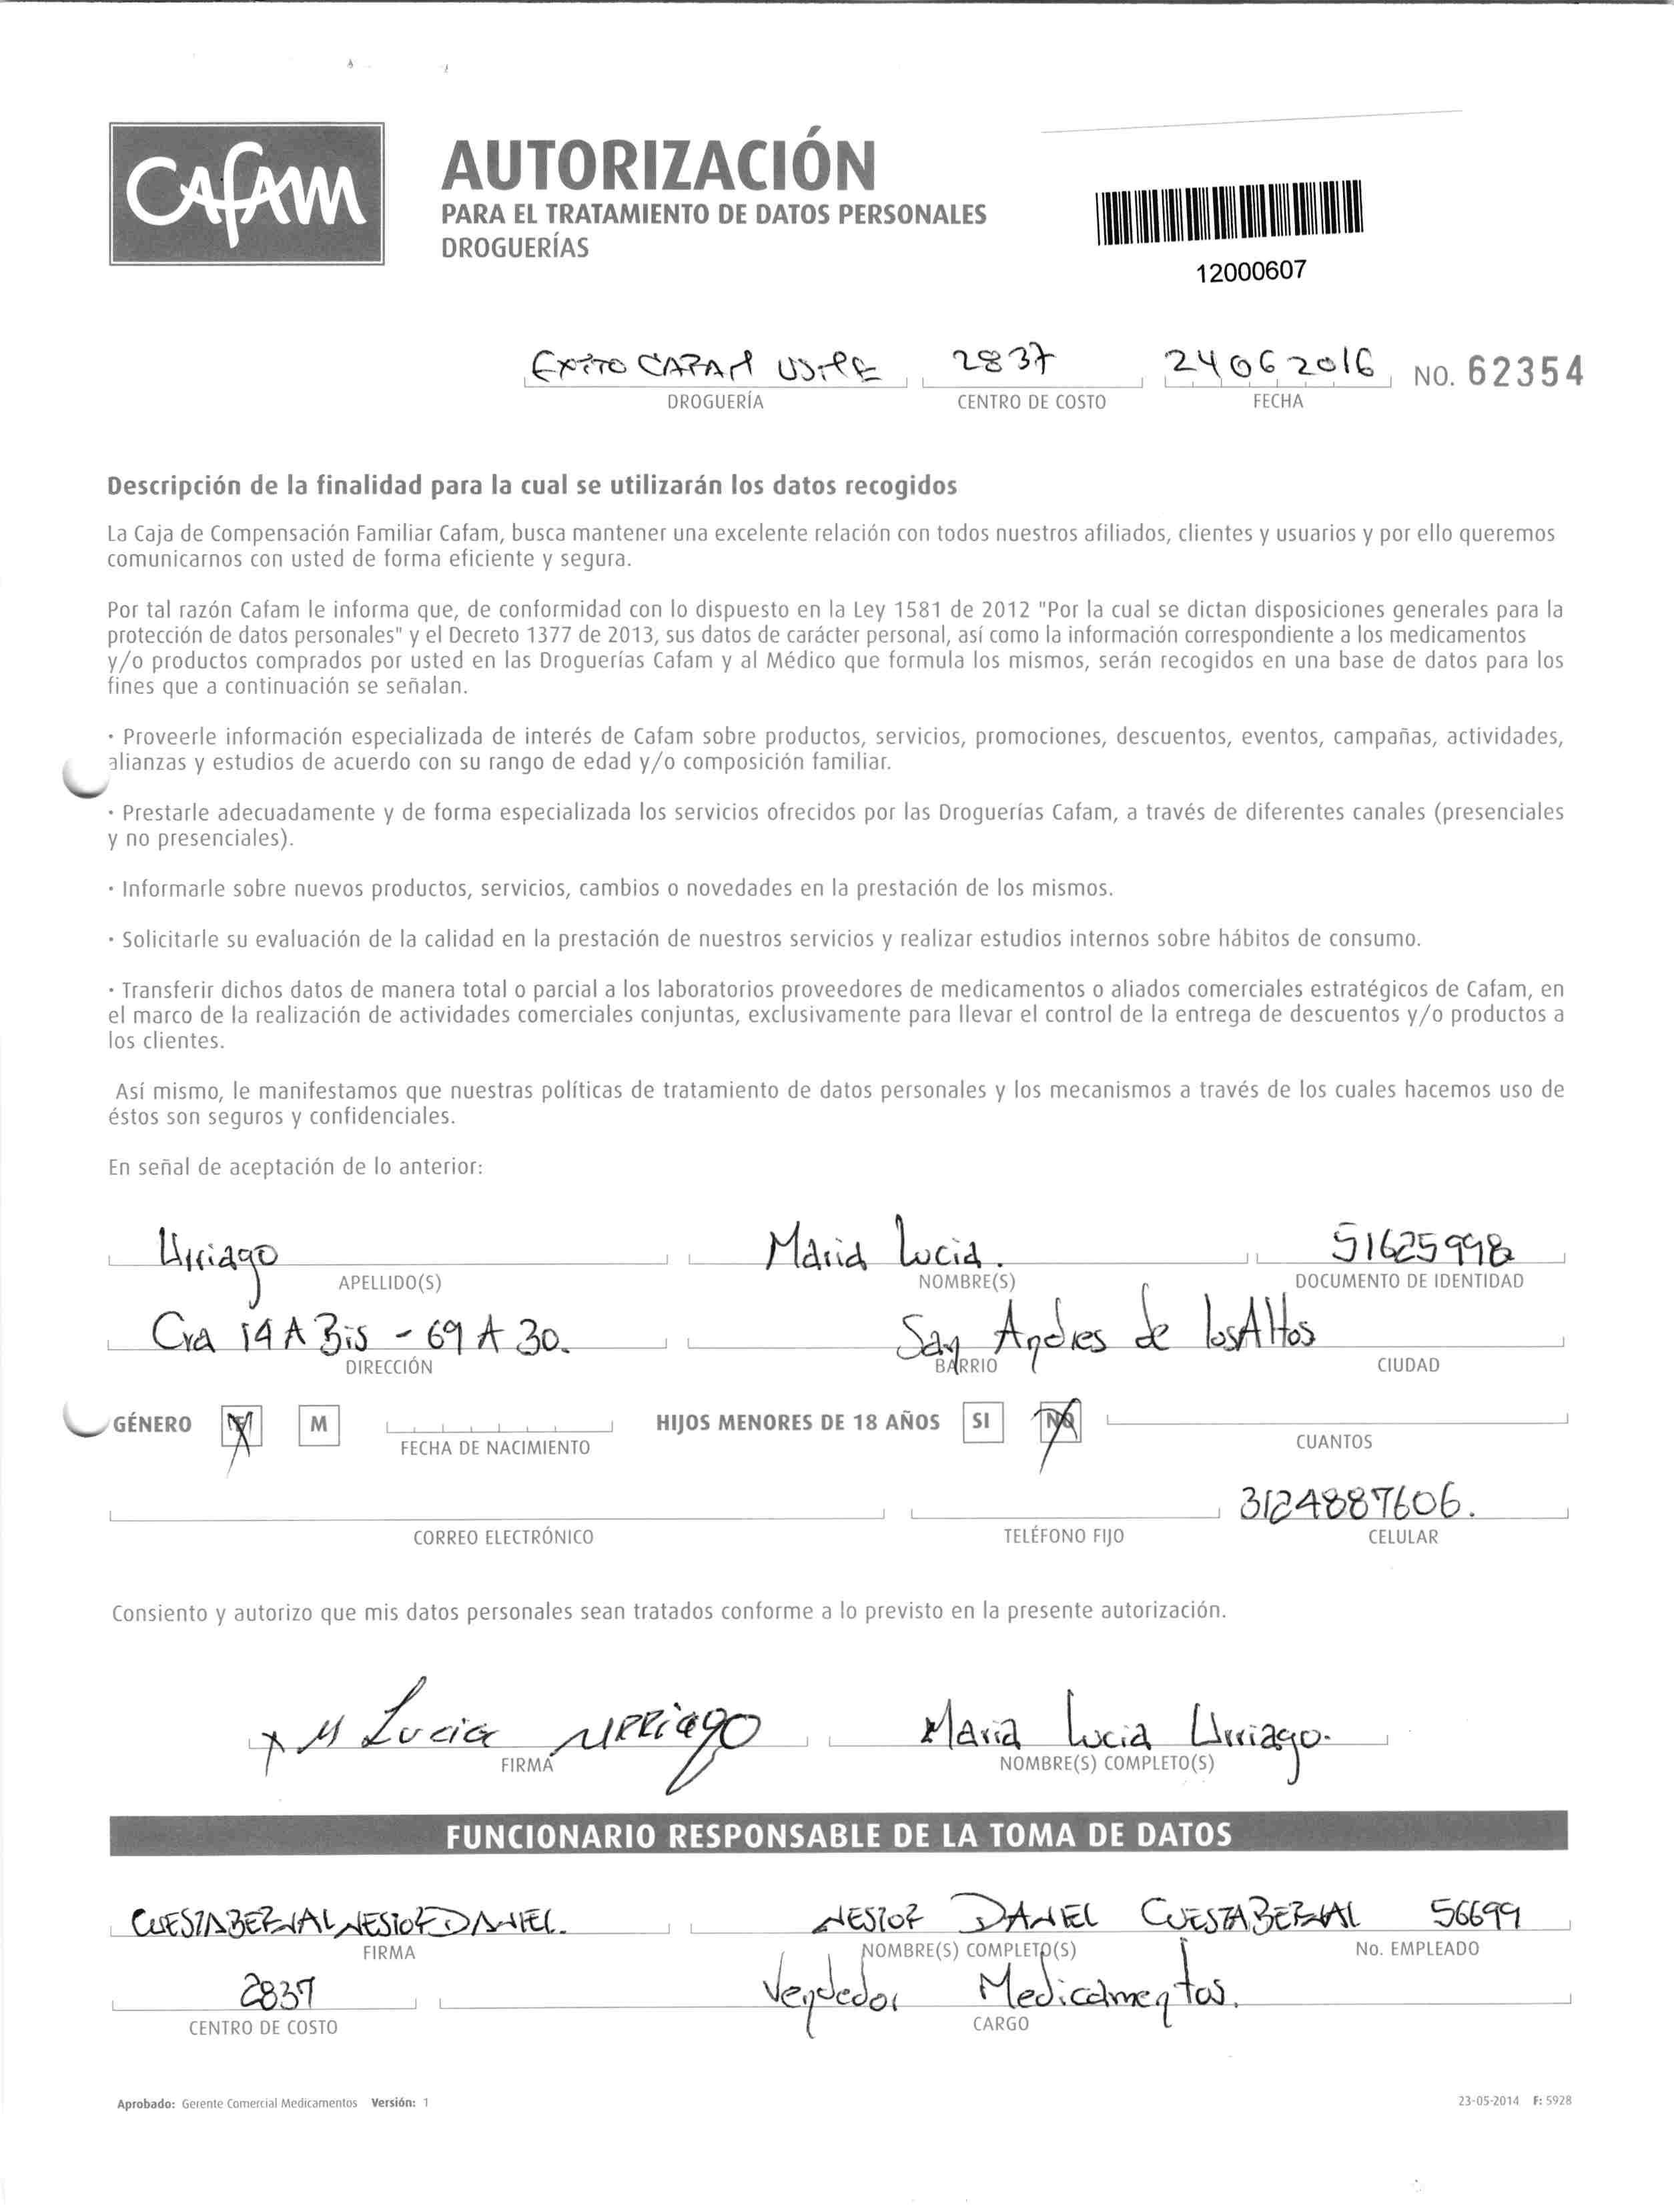 CAFAM
AUTORIZACIÓN
PARA EL TRATAMIENTO DE DATOS PERSONALES
DROGUERÍAS
12000607
Exito CAFAM USME 2837 24 06 2016 NO. 62354
DROGUERÍA CENTRO DE COSTO FECHA
Descripción de la finalidad para la cual se utilizarán los datos recogidos
La Caja de Compensación Familiar Cafam, busca mantener una excelente relación con todos nuestros afiliados, clientes y usuarios y por ello queremos
comunicarnos con usted de forma eficiente y segura.
Por tal razón Cafam le informa que, de conformidad con lo dispuesto en la Ley 1581 de 2012 "Por la cual se dictan disposiciones generales para la
protección de datos personales" y el Decreto 1377 de 2013, sus datos de carácter personal, así como la información correspondiente a los medicamentos
y/o productos comprados por usted en las Droguerías Cafam y al Médico que formula los mismos, serán recogidos en una base de datos para los
fines que a continuación se señalan.
· Proveerle información especializada de interés de Cafam sobre productos, servicios, promociones, descuentos, eventos, campañas, actividades,
alianzas y estudios de acuerdo con su rango de edad y/o composición familiar.
· Prestarle adecuadamente y de forma especializada los servicios ofrecidos por las Droguerías Cafam, a través de diferentes canales (presenciales
y no presenciales).
· Informarle sobre nuevos productos, servicios, cambios o novedades en la prestación de los mismos.
· Solicitarle su evaluación de la calidad en la prestación de nuestros servicios y realizar estudios internos sobre hábitos de consumo.
· Transferir dichos datos de manera total o parcial a los laboratorios proveedores de medicamentos o aliados comerciales estratégicos de Cafam, en
el marco de la realización de actividades comerciales conjuntas, exclusivamente para llevar el control de la entrega de descuentos y/o productos a
los clientes.
Así mismo, le manifestamos que nuestras políticas de tratamiento de datos personales y los mecanismos a través de los cuales hacemos uso de
éstos son seguros y confidenciales.
En señal de aceptación de lo anterior:
Urriago Maria Lucia. 51625998
APELLIDO(S) NOMBRE(S) DOCUMENTO DE IDENTIDAD
Cra 14 A Bis - 69 A 30. San Andres de los Altos
DIRECCIÓN BARRIO CIUDAD
GÉNERO F M HIJOS MENORES DE 18 AÑOS SI NO
FECHA DE NACIMIENTO CUANTOS
3124887606.
CORREO ELECTRÓNICO TELÉFONO FIJO CELULAR
Consiento y autorizo que mis datos personales sean tratados conforme a lo previsto en la presente autorización.
x M Lucia Urriago Maria Lucia Urriago.
FIRMA NOMBRE(S) COMPLETO(S)
FUNCIONARIO RESPONSABLE DE LA TOMA DE DATOS
CUESTA BERNAL NESTOR DANIEL. NESTOR DANIEL CUESTA BERNAL 56699
FIRMA NOMBRE(S) COMPLETO(S) No. EMPLEADO
2837 Vendedor Medicamentos.
CENTRO DE COSTO CARGO
Aprobado: Gerente Comercial Medicamentos Versión: 1 23-05-2014 F: 5928